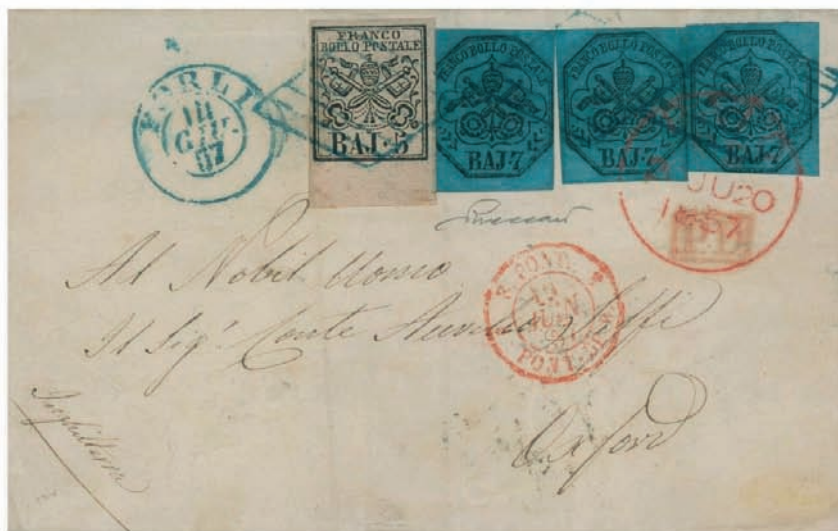 FORLI
GIU.
57
FRANCO
BOLLO POSTALE
BAJ·5
FRANCO BOLLO POSTALE
BAJ·7
FRANCO BOLLO POSTALE
BAJ·7
FRANCO BOLLO POSTALE
BAJ·7
JU 20
1857
E. PONT.
19
JUIN
57
PONT-DE-B
Al Nobil Uomo
Il Sigʳ Conte Aurelio Saffi
Oxford
Inghilterra